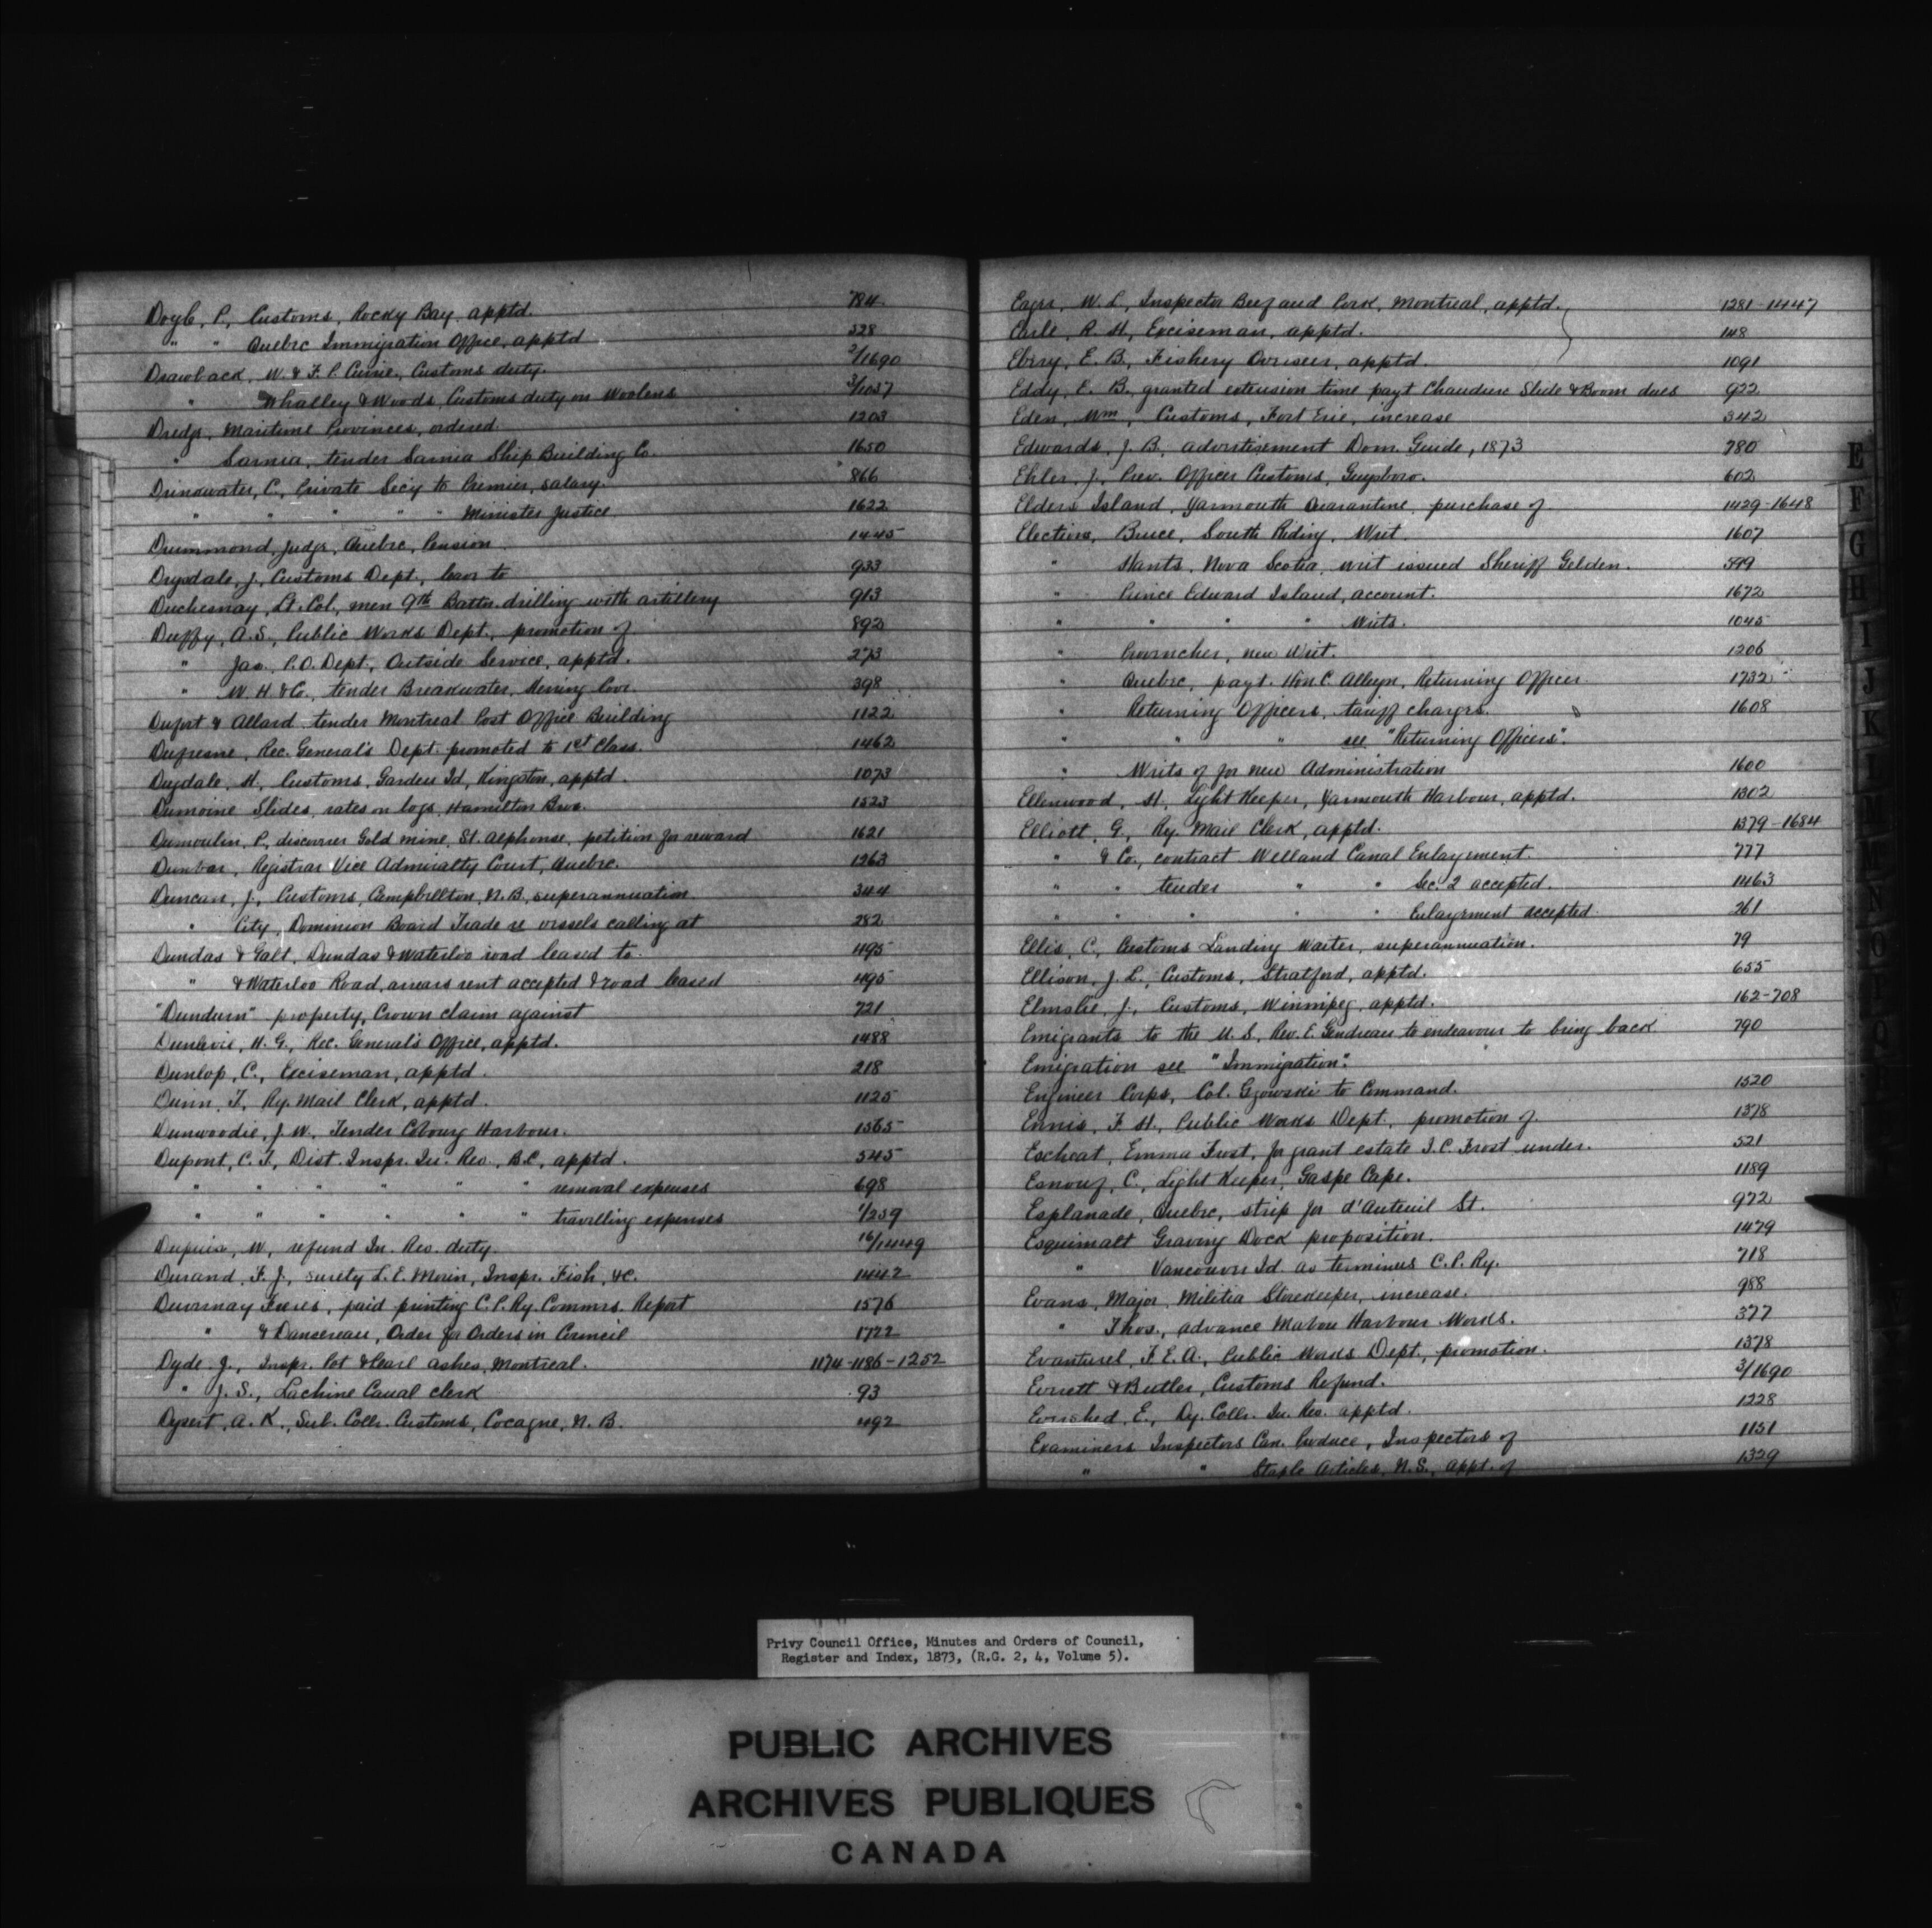 Doyle, P., Customs, Rocky Bay, apptd. 784
" " Quebec Immigration Office, apptd 328
Drawback, W. & F. P. Currie, Customs duty. 2/1690
" Whalley & Woods, Customs duty on Woolens 3/1037
Dredge, Maritime Provinces, ordered. 1203
" Sarnia, tender Sarnia Ship Building Co. 1650
Drinkwater, C., Private Sec'y to Premier, salary. 866
" " " " " Minister Justice 1622
Drummond, Judge, Quebec, Pension 1445
Drysdale, J., Customs Dept., leave to 933
Duchesnay, Lt. Col., men 9th Battn. drilling with artillery 913
Duffy, A.S., Public Works Dept., promotion of 892
" Jas., P.O. Dept., Outside Service, apptd. 273
" W. H. & Co., tender Breakwater, Cove. 398
Dufort & Allard tender Montreal Post Office Building 1122
Dufresne, Rec. General's Dept. promoted to 1st Class. 1462
Dugdale, H., Customs, Garden Id, Kingston, apptd. 1073
Dumoine Slides, rates on logs, Hamilton Bros. 1523
Dumoulin, P., discoverer Gold mine, St. Alphonse, petition for reward 1621
Dunbar, Registrar Vice Admiralty Court, Quebec. 1263
Duncan, J., Customs, Campbellton, N.B., superannuation 344
" City, Dominion Board Trade re vessels calling at 282
Dundas & Galt, Dundas & Waterloo road leased to 495
" & Waterloo Road, arrears rent accepted & road leased 495
"Dundurn" property, Crown claim against 721
Dunlevie, H. G., Rec. General's Office, apptd. 1488
Dunlop, C., Exciseman, apptd. 218
Dunn, T., Ry. Mail Clerk, apptd. 1125
Dunwoodie, J. W., Tender Cobourg Harbour. 1565
Dupont, C. T., Dist. Inspr. In. Rev., B.C., apptd. 545
" " " " " " removal expenses 698
" " " " " " travelling expenses 1/259
Dupuis, W., refund In. Rev. duty. 16/1449
Durand, F. J., surety L. E. Morin, Inspr. Fish, &c. 1442
Duvernay Freres, paid printing C.P. Ry. Commrs. Report 1576
" & Dansereau, Order for Orders in Council 1722
Dyde, J., Inspr. Pot & Pearl ashes, Montreal. 1174-1186-1252
" J. S., Lachine Canal clerk 93
Dysert, A. K., Sub. Collr. Customs, Cocagne, N.B. 492
Eager, W. L., Inspector Beef and Pork, Montreal, apptd. 1281-1447
Earle, R. H., Exciseman, apptd. 148
Ebery, E. B., Fishery Overseer, apptd. 1091
Eddy, E. B., granted extension time payt Chaudiere Slide & Boom dues 922
Eden, Wm, Customs, Fort Erie, increase 342
Edwards, J. B., advertisement Dom. Guide, 1873 780
Ehler, J., Prev. Officer Customs, Guysboro. 602
Elders Island, Yarmouth Quarantine, purchase of 1429-1648
Elections, Bruce, South Riding, Writ. 1607
" Hants, Nova Scotia, writ issued Sheriff Gelden. 599
" Prince Edward Island, account. 1672
" " " " Writs. 1045
" Provencher, new Writ. 1206
" Quebec, payt. Hon C. Alleyn, Returning Officer 1732
" Returning Officers, tariff charges. 1608
" " " see "Returning Officers".
" Writs of for new Administration 1600
Ellenwood, H., Light Keeper, Yarmouth Harbour, apptd. 1302
Elliott, G., Ry. Mail Clerk, apptd. 1379-1684
" & Co., contract Welland Canal Enlargement. 777
" " tender " " Sec. 2 accepted. 1463
" " " " " Enlargement accepted 261
Ellis, C., Customs Landing Waiter, superannuation. 79
Ellison, J. L., Customs, Stratford, apptd. 655
Elmslie, J., Customs, Winnipeg, apptd. 162-708
Emigrants to the U.S., Rev. E. Gendreau to endeavour to bring back 790
Emigration see "Immigration".
Engineer Corps, Col. Gzowski to Command. 1520
Ennis, F. H., Public Works Dept., promotion of 1378
Escheat, Emma Frost, for grant estate I. C. Frost under. 521
Esnouf, C., Light Keeper, Gaspe Cape. 1189
Esplanade, Quebec, strip for d'Auteuil St. 972
Esquimalt Graving Dock proposition. 1479
" Vancouver Id. as terminus C.P. Ry. 718
Evans, Major, Militia Storekeeper, increase. 988
" Thos., advance Mabou Harbour Works. 377
Evanturel, F. E. A., Public Works Dept., promotion. 1378
Everett & Butler, Customs Refund. 3/1690
Evershed, E., Dy. Collr. In. Rev. apptd. 1228
Examiners Inspectors Can. Produce, Inspectors of 1151
" " Staple Articles, N.S., appt. of 1329
E
F
G
H
I
J
K
Privy Council Office, Minutes and Orders of Council,
Register and Index, 1873, (R.G. 2, 4, Volume 5).
PUBLIC ARCHIVES
ARCHIVES PUBLIQUES
CANADA